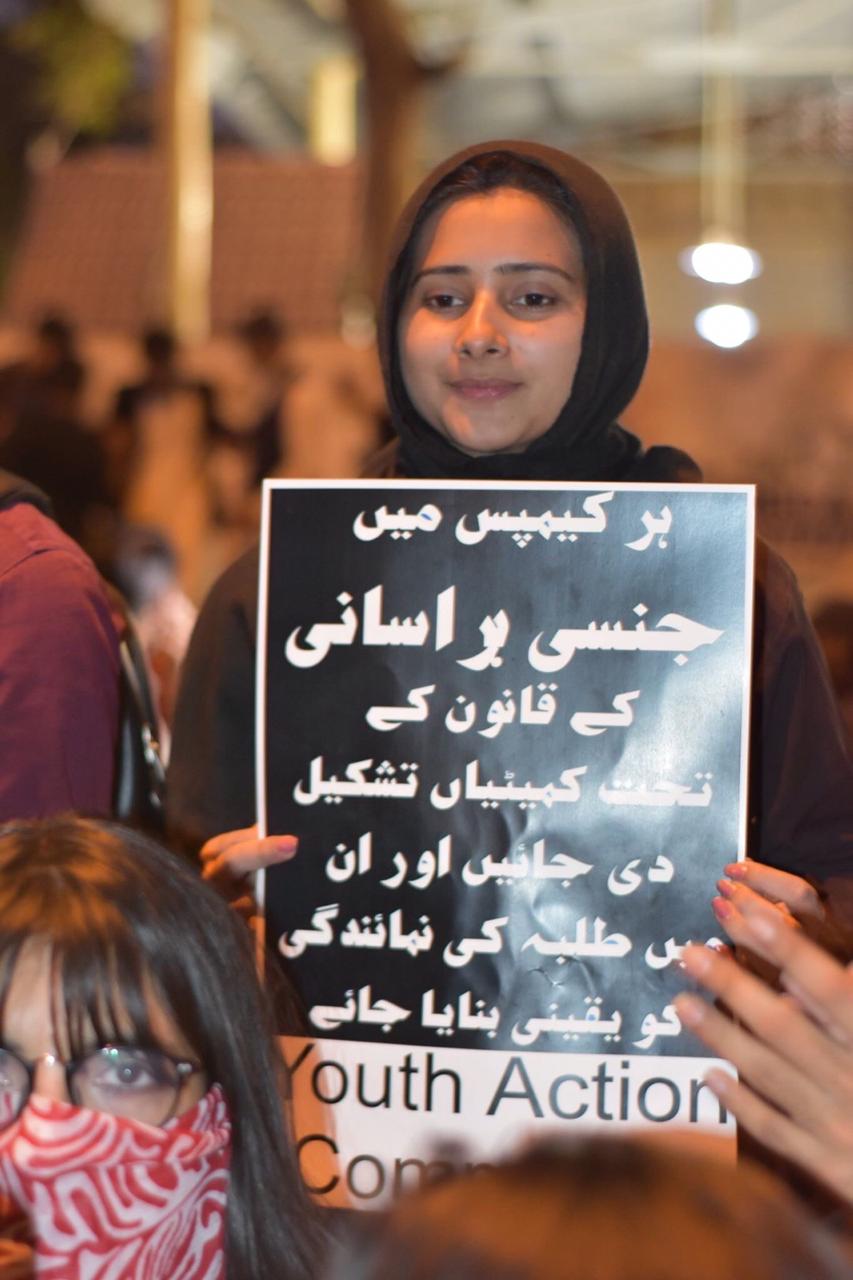 ہر کیمپس میں
جنسی ہراسانی
کے قانون کے
تحت کمیٹیاں تشکیل
دی جائیں اور ان
میں طلبہ کی نمائندگی
کو یقینی بنایا جائے
Youth Action